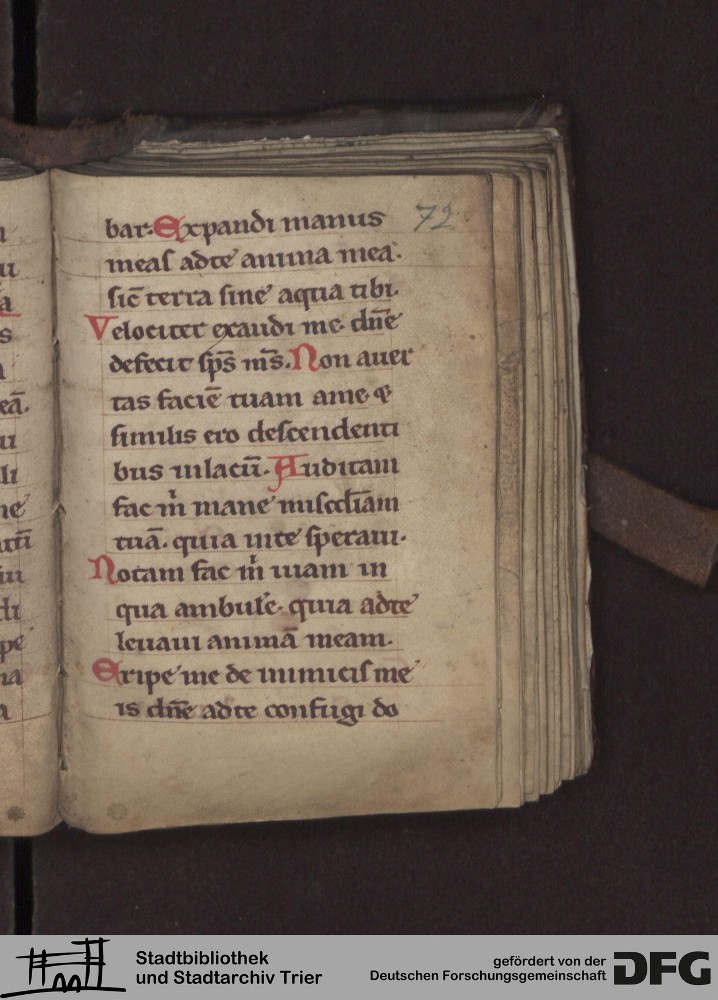 72
bar. Expandi manus
meas adte anima mea.
sic̄ terra sine aqua tibi.
Velociter exaudi me dn̄e
defecit sp̄s m̄s. Non auer
tas faciē tuam ame &
similis ero descendenti
bus inlacū. Auditam
fac m̄ mane mis̄cdīam
tuā. quia inte speraui.
Notam fac m̄ uiam in
qua ambulē. quia adte
leuaui animā meam.
Eripe me de inimicis me
is dn̄e adte confugi do
Stadtbibliothek
und Stadtarchiv Trier
gefördert von der
Deutschen Forschungsgemeinschaft
DFG